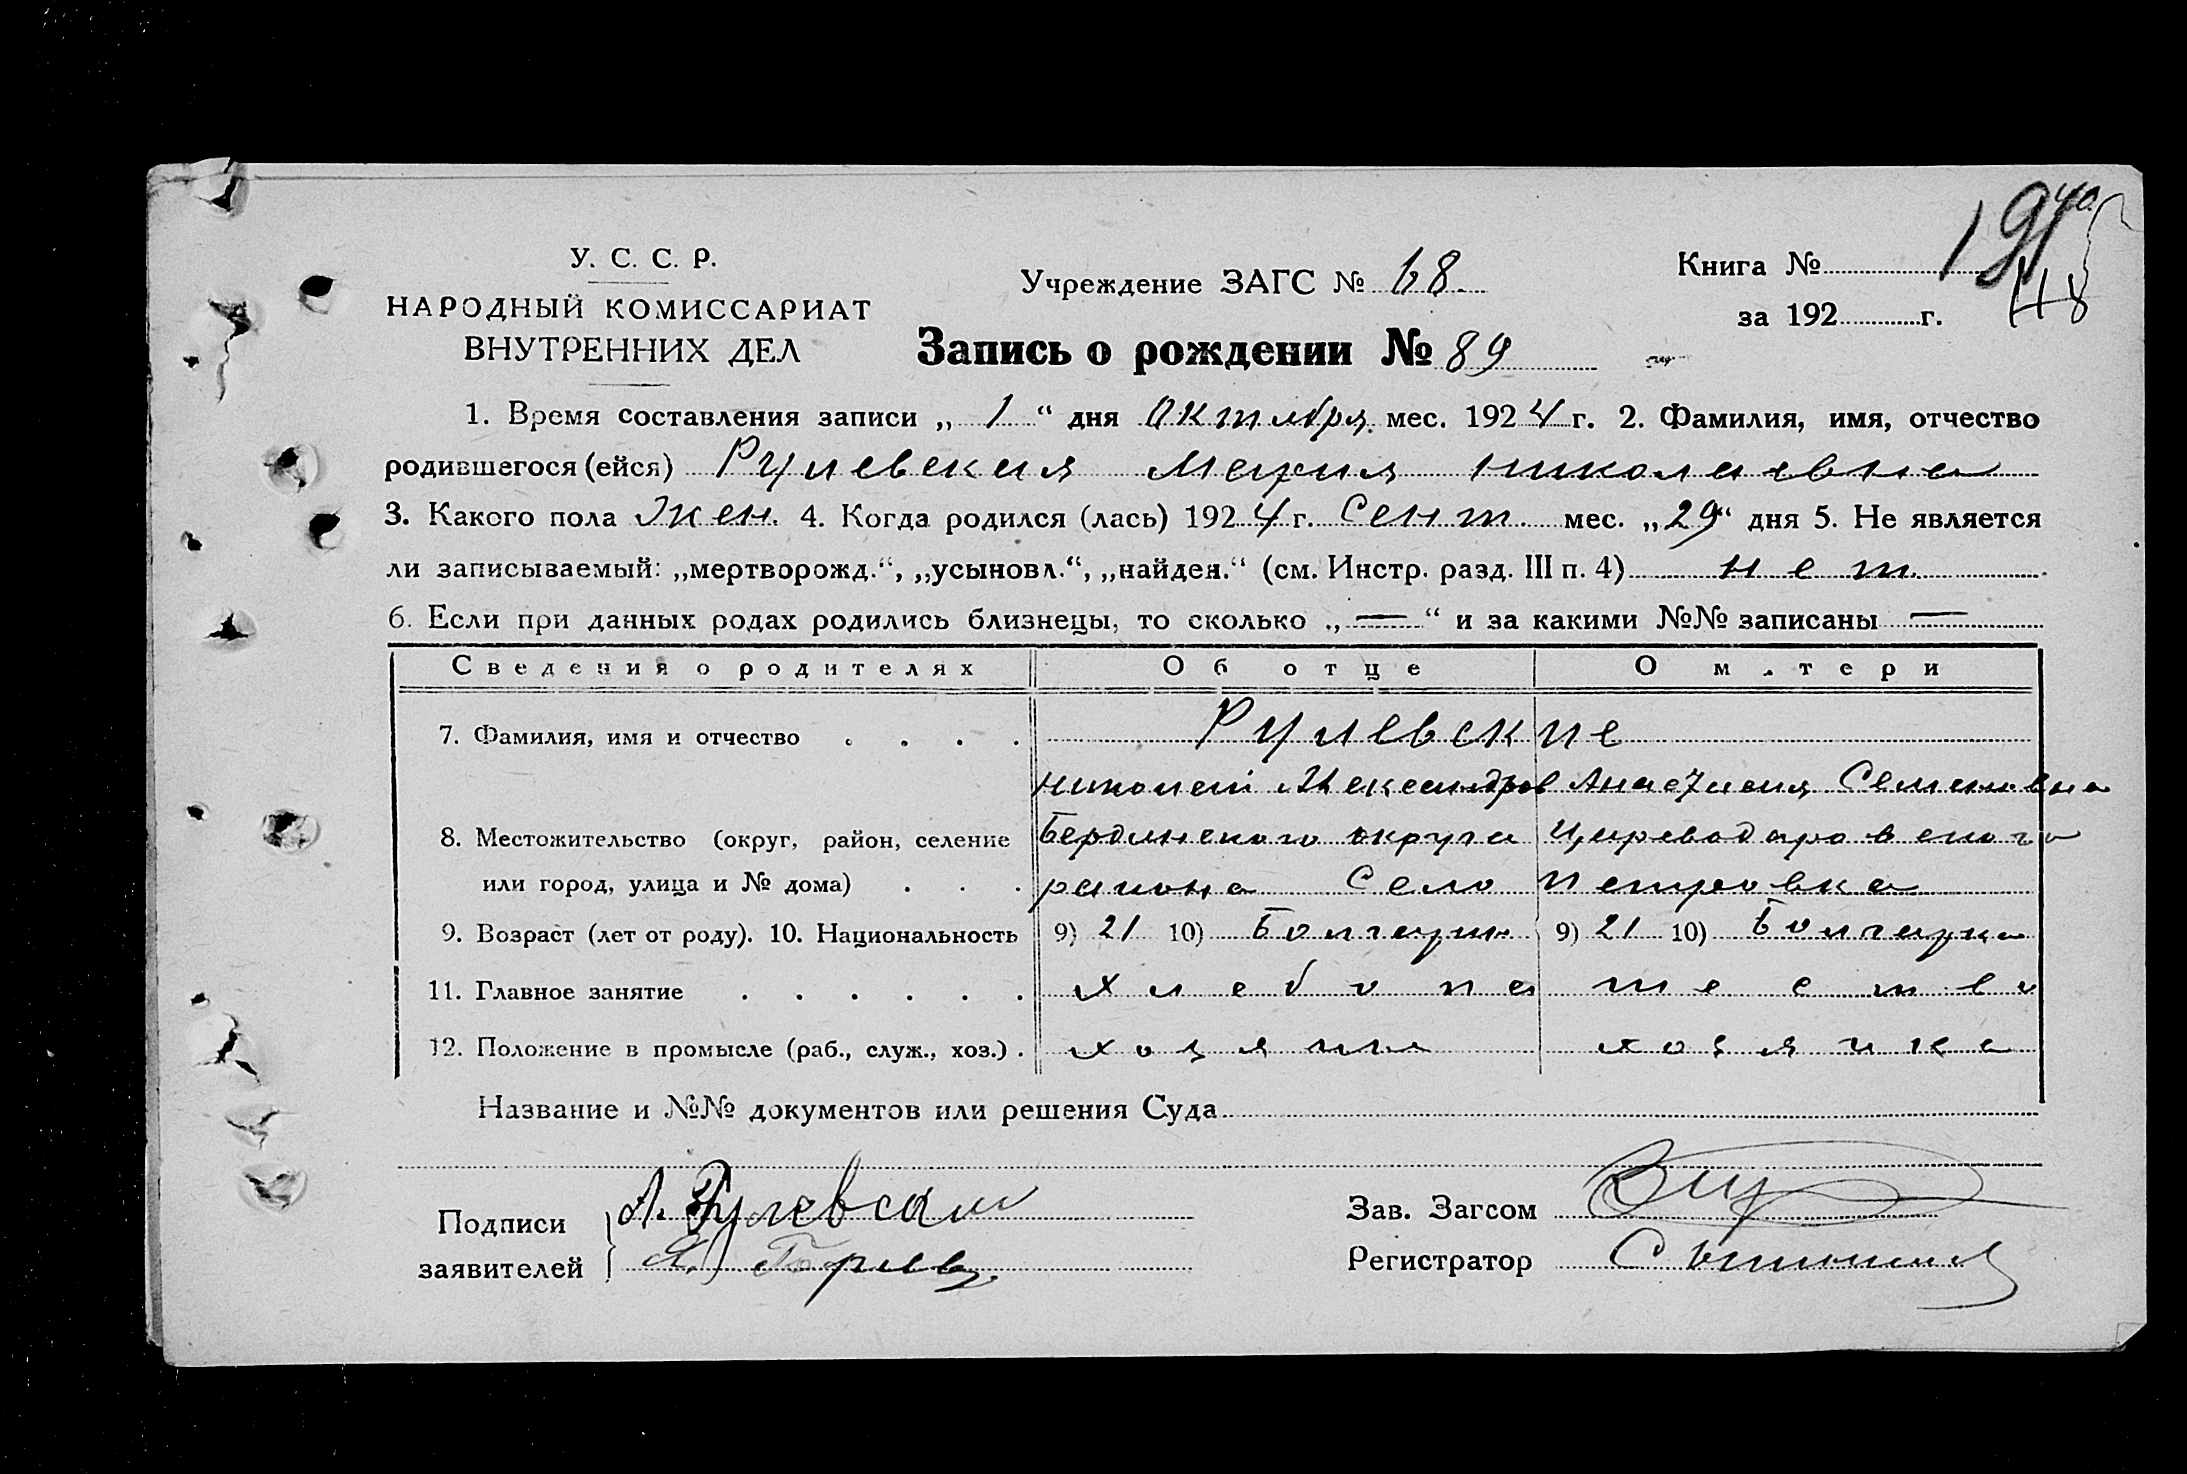 У. С. С. Р.
НАРОДНЫЙ КОМИССАРИАТ
ВНУТРЕННИХ ДЕЛ
Учреждение ЗАГС № 68.
Книга №
за 192 г.
Запись о рождении № 89
1. Время составления записи „ 1 “ дня Октября мес. 1924 г. 2. Фамилия, имя, отчество
родившегося (ейся) Рулевская Мария Николаевна
3. Какого пола Жен. 4. Когда родился (лась) 1924 г. Сент. мес. „29“ дня 5. Не является
ли записываемый: „мертворожд.“, „усыновл.“, „найден.“ (см. Инстр. разд. III п. 4) нет
6. Если при данных родах родились близнецы, то сколько „ — “ и за какими №№ записаны —
Сведения о родителях Об отце О м.тери
7. Фамилия, имя и отчество . . . . Рулевские
Николай Александров Анастасия Семеновна
8. Местожительство (округ, район, селение Бердянского округа Цареводаровского
или город, улица и № дома) . . . района Село Петровка
9. Возраст (лет от роду). 10. Национальность 9) 21 10) Болгарин 9) 21 10) Болгарка
11. Главное занятие . . . . . . хлебопашество
12. Положение в промысле (раб., служ., хоз.) . хозяин хозяйка
Название и №№ документов или решения Суда
Подписи А. Рулевская
заявителей
Зав. Загсом
Регистратор